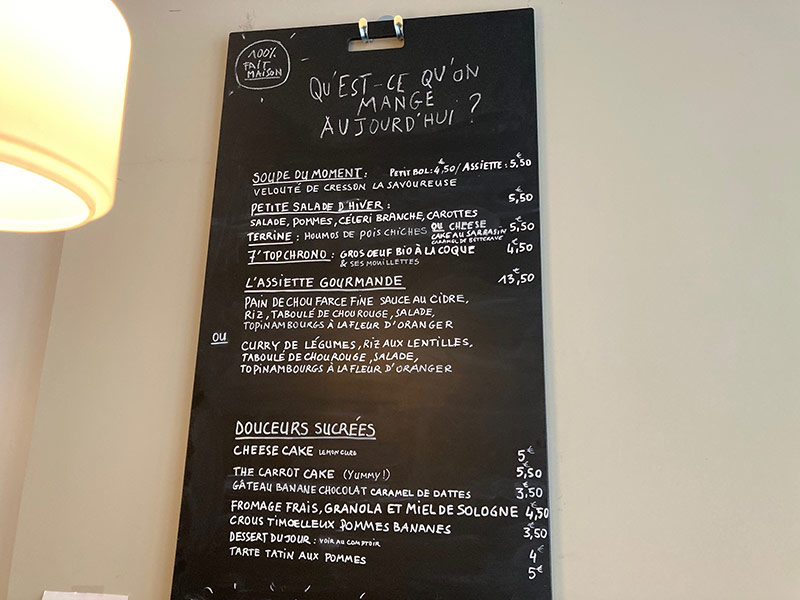 100%
FAIT
MAISON
QU'EST-CE QU'ON
MANGE
AUJOURD'HUI ?
SOUPE DU MOMENT : PETIT BOL : 4,50€ / ASSIETTE : 5,50€
VELOUTÉ DE CRESSON LA SAVOUREUSE
PETITE SALADE D'HIVER : 5,50€
SALADE, POMMES, CÉLERI BRANCHE, CAROTTES
TERRINE : HOUMOS DE POIS CHICHES OU CHEESE 5,50€
CAKE AU SARRASIN
CARAMEL DE BETTERAVE
7' TOP CHRONO : GROS OEUF BIO À LA COQUE 4,50€
& SES MOUILLETTES
L'ASSIETTE GOURMANDE 13,50€
PAIN DE CHOU FARCE FINE SAUCE AU CIDRE,
RIZ, TABOULÉ DE CHOU ROUGE, SALADE,
TOPINAMBOURGS À LA FLEUR D'ORANGER
OU
CURRY DE LÉGUMES, RIZ AUX LENTILLES,
TABOULÉ DE CHOU ROUGE, SALADE,
TOPINAMBOURGS À LA FLEUR D'ORANGER
DOUCEURS SUCRÉES
CHEESE CAKE LEMON CURD 5€
THE CARROT CAKE (YUMMY!) 5,50€
GÂTEAU BANANE CHOCOLAT CARAMEL DE DATTES 3,50€
FROMAGE FRAIS, GRANOLA ET MIEL DE SOLOGNE 4,50€
CROUSTIMOELLEUX POMMES BANANES 3,50€
DESSERT DU JOUR : VOIR AU COMPTOIR 4€
TARTE TATIN AUX POMMES 5€